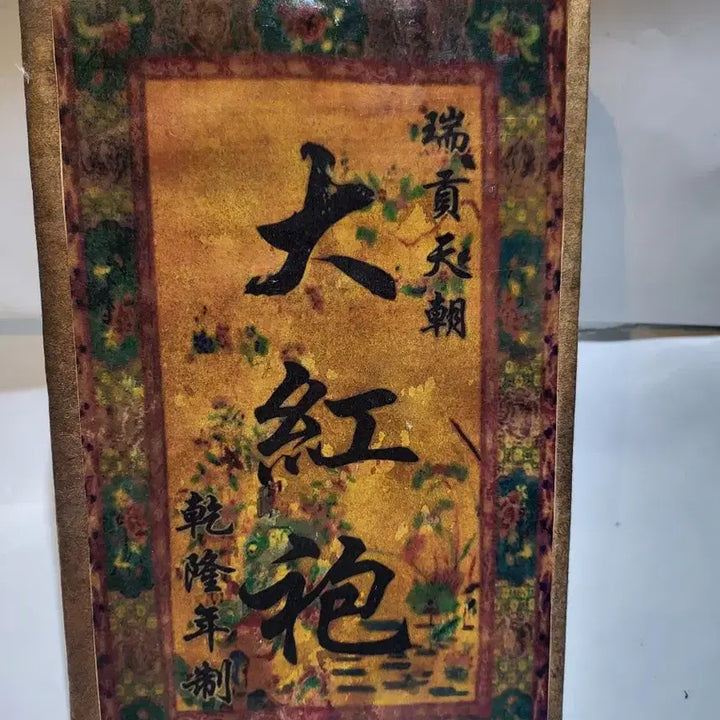 瑞貢天朝
大紅袍
乾隆年制